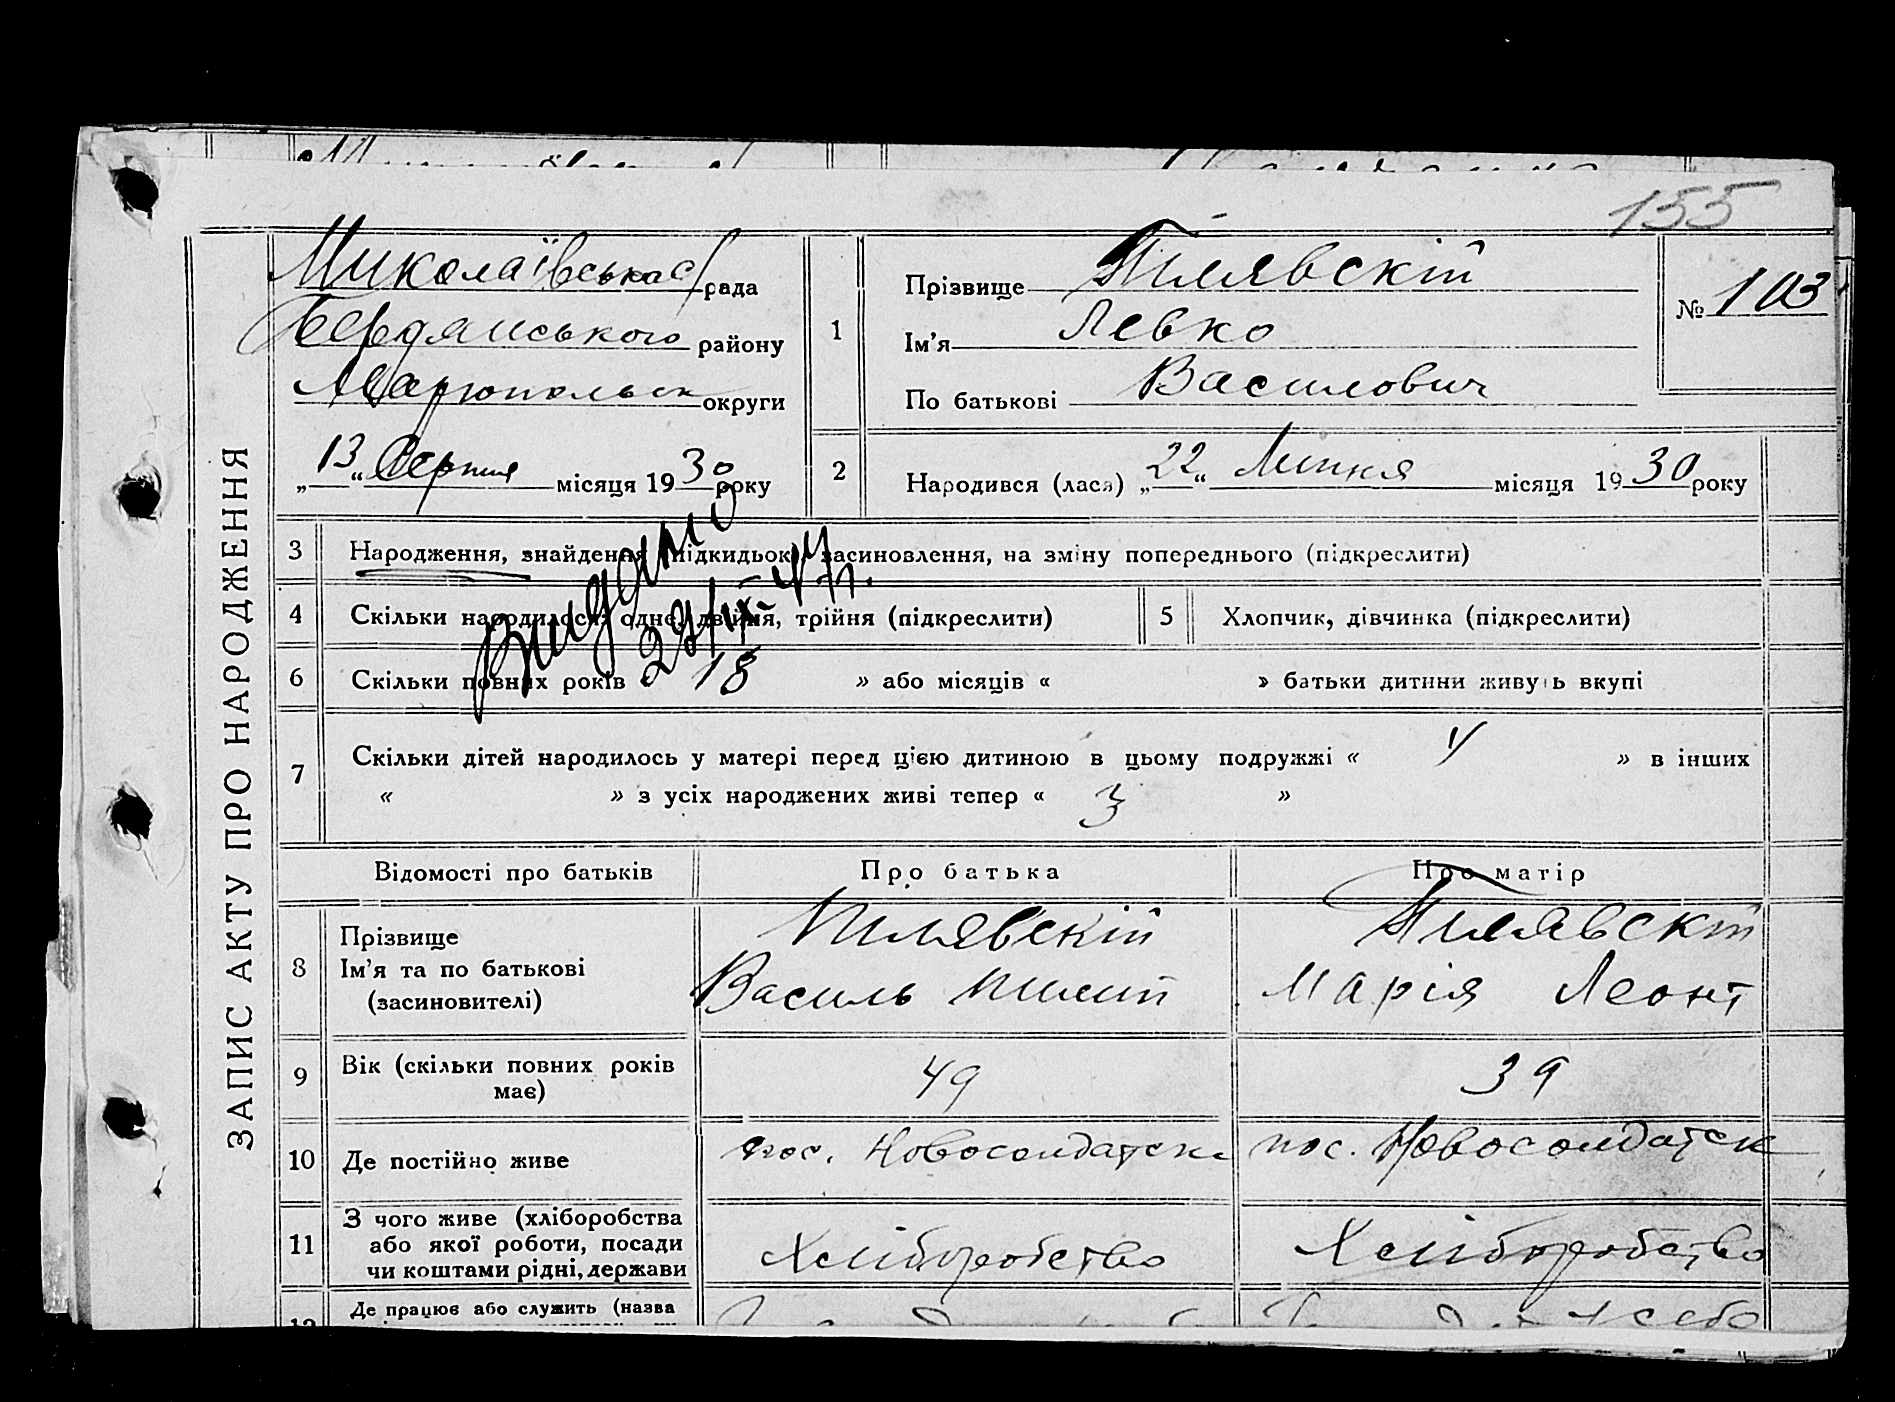 155
ЗАПИС АКТУ ПРО НАРОДЖЕННЯ
Миколаївська с/рада
Бердянського району
Маріюпольськ округи
„13“ Серпня місяця 1930 року
1
Прізвище Пілявскій
Ім'я Левко
По батькові Василович
№ 103
2
Народився (лася) „22“ Липня місяця 1930 року
3 Народження, знайдення підкидьок, засиновлення, на зміну попереднього (підкреслити)
Видано
4 Скільки народилося: одне, двійня, трійня (підкреслити) 5 Хлопчик, дівчинка (підкреслити)
6 Скільки повних років 18 » або місяців « » батьки дитини живуть вкупі
7 Скільки дітей народилось у матері перед цією дитиною в цьому подружжі « 4 » в інших
« » з усіх народжених живі тепер « 3 »
Відомості про батьків Про батька Про матір
8 Прізвище Пілявскій Пилявскій
Ім'я та по батькові Василь Пилип Марія Леонт
(засиновителі)
9 Вік (скільки повних років має) 49 39
10 Де постійно живе пос. Новосолдатськ пос. Новосолдатск
11 З чого живе (хліборобства Хліборобство Хліборобство
або якої роботи, посади
чи коштами рідні, держави
12 Де працює або служить (назва